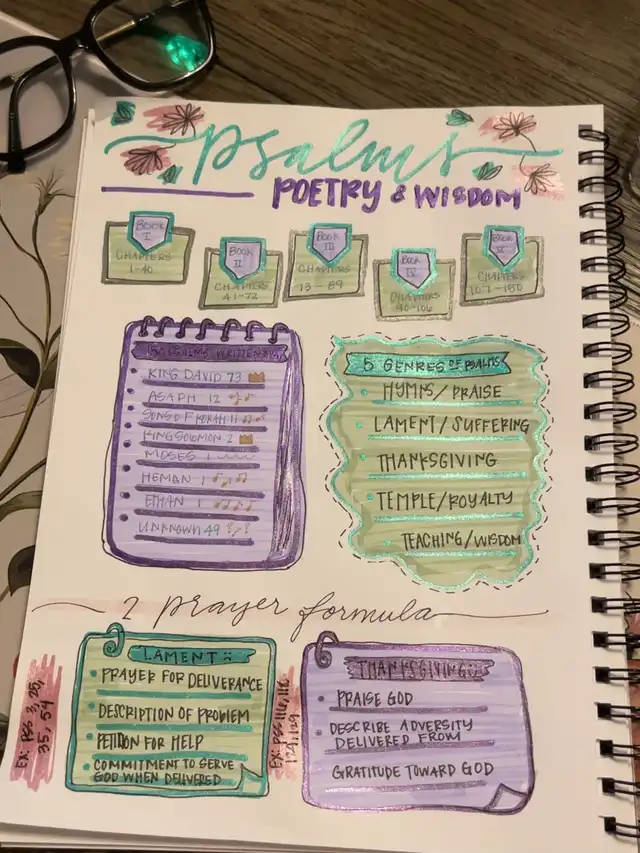 psalms
POETRY & WISDOM
BOOK I
CHAPTERS
1-40
BOOK II
CHAPTERS
41-72
BOOK III
CHAPTERS
73 - 89
BOOK IV
CHAPTERS
90-106
BOOK V
CHAPTERS
107-150
150 PSALMS WRITTEN BY:
KING DAVID 73
ASAPH 12
SONS OF KORAH 11
KING SOLOMON 2
MOSES 1
HEMAN 1
ETHAN 1
UNKNOWN 49
5 GENRES OF PSALMS
HYMNS/PRAISE
LAMENT/SUFFERING
THANKSGIVING
TEMPLE/ROYALTY
TEACHING/WISDOM
2 prayer formula
LAMENT
PRAYER FOR DELIVERANCE
DESCRIPTION OF PROBLEM
PETITION FOR HELP
COMMITMENT TO SERVE
GOD WHEN DELIVERED
EX: PSS 3, 25,
35, 54
THANKSGIVING
PRAISE GOD
DESCRIBE ADVERSITY
DELIVERED FROM
GRATITUDE TOWARD GOD
EX: PSS
124, 129